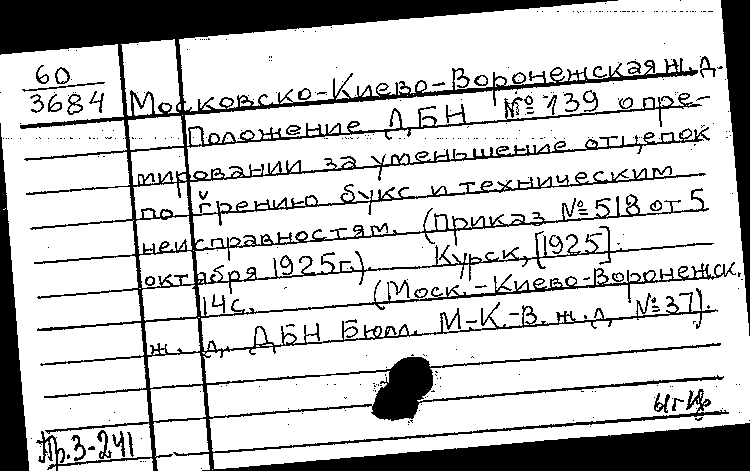 60
3684
Московско-Киево-Воронежская ж. д.
Положение ДБН №139 о пре-
мировании за уменьшение отцепок
по грению букс и техническим
неисправностям. (Приказ №518 от 5
октября 1925г.). Курск, [1925].
14с. (Моск.-Киево-Воронежск.
ж. д. ДБН Бюлл. М-К.-В. ж. д. №37).
Пр.3-241